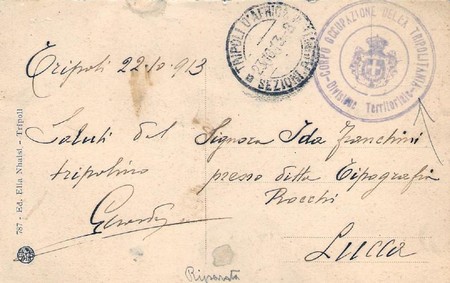 Tripoli 22-10-913
TRIPOLI D'AFRICA
SEZIONE
CORPO OCCUPAZIONE DELLA TRIPOLITANIA
Divisione Territoriale
Saluti dal
tripolino
Signora Ida Franchini
presso ditta Tipografia
Rocchi
Lucca
787 - Ed. Elia Nhaisi - Tripoli
Riparata